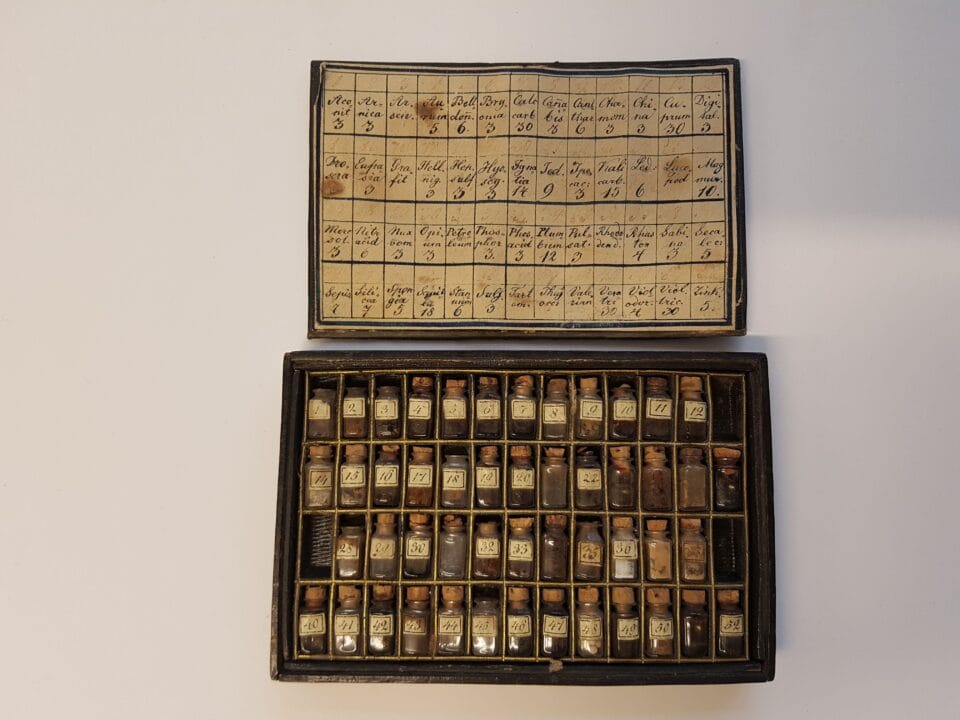 Aco- Ar- Ar- Au Bell Bry Calc Caña Cant Cha- Chi Cu- Digi
nit nica sen. rum don. onia carb bis thar mom na prum tal.
3 3 5 6. 3 30 3 6 3 3 30 3
Dro Eufra Gra Hell Hep Hyo Igna Jod. Ipe Kali Led. Lyco Mag
sera sia fit nig sulf scy. tia cac: carb. pod mur.
3 3 3 3 14 9 3 13 6 10.
Merc Nitr Nux Opi Petro Phos Phos Plum Pul Rhod Rhus Sabi Seca
sol. acid vom um leum phor acid bum sat. dend. tox na le c:
3 6 3 3 3. 3 12 3 4 3 5
Sepia Sili Spon Squil Stan Sulf Tart Thuj Vale Vera Viol Viol Zink.
cea gea la num em. occi rian tri odor. tric.
7 7 5 18 6 3 4 30 5.
1 2 3 4 5 6 7 8 9 10 11 12
14 15 16 17 18 19 20 22
28 29 30 32 33 35 36
40 41 42 43 44 45 46 47 48 49 50 52